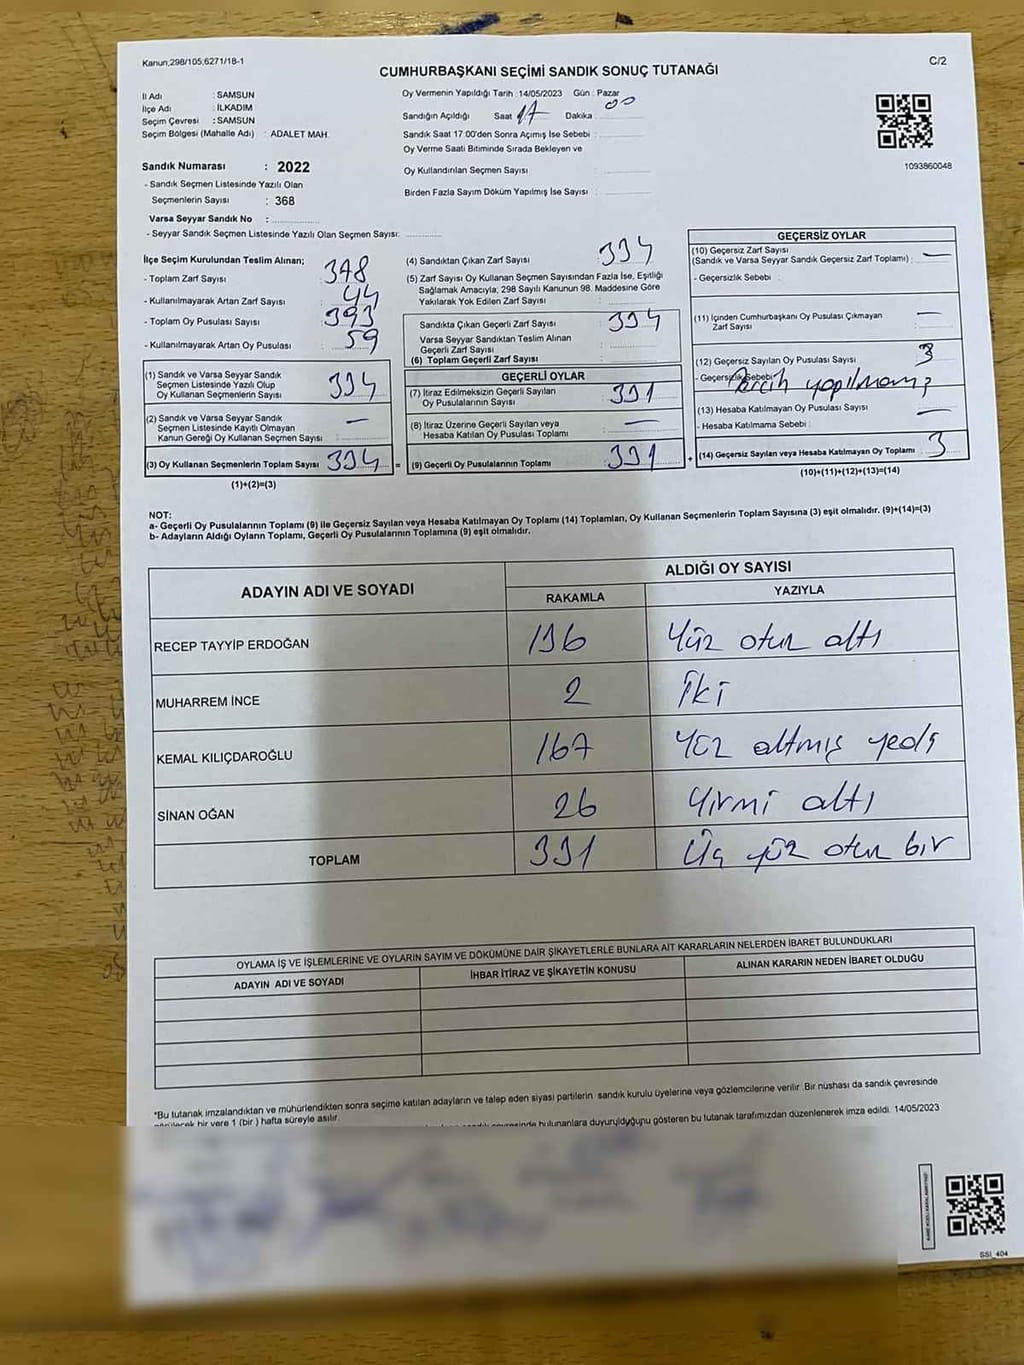 Kanun;298/105;6271/18-1
C/2
CUMHURBAŞKANI SEÇİMİ SANDIK SONUÇ TUTANAĞI
İl Adı : SAMSUN
İlçe Adı : İLKADIM
Seçim Çevresi : SAMSUN
Seçim Bölgesi (Mahalle Adı) : ADALET MAH.
Sandık Numarası : 2022
- Sandık Seçmen Listesinde Yazılı Olan
Seçmenlerin Sayısı : 368
Varsa Seyyar Sandık No :
- Seyyar Sandık Seçmen Listesinde Yazılı Olan Seçmen Sayısı:
Oy Vermenin Yapıldığı Tarih :14/05/2023 Gün : Pazar
Sandığın Açıldığı Saat 17 Dakika 00
Sandık Saat 17:00'den Sonra Açımış İse Sebebi :
Oy Verme Saati Bitiminde Sırada Bekleyen ve
Oy Kullandırılan Seçmen Sayısı :
Birden Fazla Sayım Döküm Yapılmış İse Sayısı :
1093860048
İlçe Seçim Kurulundan Teslim Alınan;
- Toplam Zarf Sayısı 378
- Kullanılmayarak Artan Zarf Sayısı : 44
- Toplam Oy Pusulası Sayısı : 393
- Kullanılmayarak Artan Oy Pusulası : 59
(1) Sandık ve Varsa Seyyar Sandık
Seçmen Listesinde Yazılı Olup
Oy Kullanan Seçmenlerin Sayısı : 334
(2) Sandık ve Varsa Seyyar Sandık
Seçmen Listesinde Kayıtlı Olmayan
Kanun Gereği Oy Kullanan Seçmen Sayısı : —
(3) Oy Kullanan Seçmenlerin Toplam Sayısı : 334
(1)+(2)=(3)
(4) Sandıktan Çıkan Zarf Sayısı : 334
(5) Zarf Sayısı Oy Kullanan Seçmen Sayısından Fazla İse, Eşitliği
Sağlamak Amacıyla; 298 Sayılı Kanunun 98. Maddesine Göre
Yakılarak Yok Edilen Zarf Sayısı :
Sandıkta Çıkan Geçerli Zarf Sayısı : 334
Varsa Seyyar Sandıktan Teslim Alınan
Geçerli Zarf Sayısı :
(6) Toplam Geçerli Zarf Sayısı :
GEÇERLİ OYLAR
(7) İtiraz Edilmeksizin Geçerli Sayılan
Oy Pusulalarının Sayısı : 331
(8) İtiraz Üzerine Geçerli Sayılan veya
Hesaba Katılan Oy Pusulası Toplamı : —
= (9) Geçerli Oy Pusulalarının Toplamı : 331
GEÇERSİZ OYLAR
(10) Geçersiz Zarf Sayısı
(Sandık ve Varsa Seyyar Sandık Geçersiz Zarf Toplamı) : —
- Geçersizlik Sebebi :
(11) İçinden Cumhurbaşkanı Oy Pusulası Çıkmayan
Zarf Sayısı : —
(12) Geçersiz Sayılan Oy Pusulası Sayısı : 3
- Geçersizlik Sebebi: Tercih yapılmamış
(13) Hesaba Katılmayan Oy Pusulası Sayısı : —
- Hesaba Katılmama Sebebi :
+ (14) Geçersiz Sayılan veya Hesaba Katılmayan Oy Toplamı : 3
(10)+(11)+(12)+(13)=(14)
NOT:
a- Geçerli Oy Pusulalarının Toplamı (9) ile Geçersiz Sayılan veya Hesaba Katılmayan Oy Toplamı (14) Toplamları, Oy Kullanan Seçmenlerin Toplam Sayısına (3) eşit olmalıdır. (9)+(14)=(3)
b- Adayların Aldığı Oyların Toplamı, Geçerli Oy Pusulalarının Toplamına (9) eşit olmalıdır.
ADAYIN ADI VE SOYADI ALDIĞI OY SAYISI
RAKAMLA YAZIYLA
RECEP TAYYİP ERDOĞAN 136 Yüz otuz altı
MUHARREM İNCE 2 İki
KEMAL KILIÇDAROĞLU 167 Yüz altmış yedi
SİNAN OĞAN 26 Yirmi altı
TOPLAM 331 Üç yüz otuz bir
OYLAMA İŞ VE İŞLEMLERİNE VE OYLARIN SAYIM VE DÖKÜMÜNE DAİR ŞİKAYETLERLE BUNLARA AİT KARARLARIN NELERDEN İBARET BULUNDUKLARI
ADAYIN ADI VE SOYADI İHBAR İTİRAZ VE ŞİKAYETİN KONUSU ALINAN KARARIN NEDEN İBARET OLDUĞU
*Bu tutanak imzalandıktan ve mühürlendikten sonra seçime katılan adayların ve talep eden siyasi partilerin sandık kurulu üyelerine veya gözlemcilerine verilir .Bir nüshası da sandık çevresinde
görülecek bir yere 1 (bir ) hafta süreyle asılır.
bulunanlara duyurulduğunu gösteren bu tutanak tarafımızdan düzenlenerek imza edildi. 14/05/2023
SSİ_404